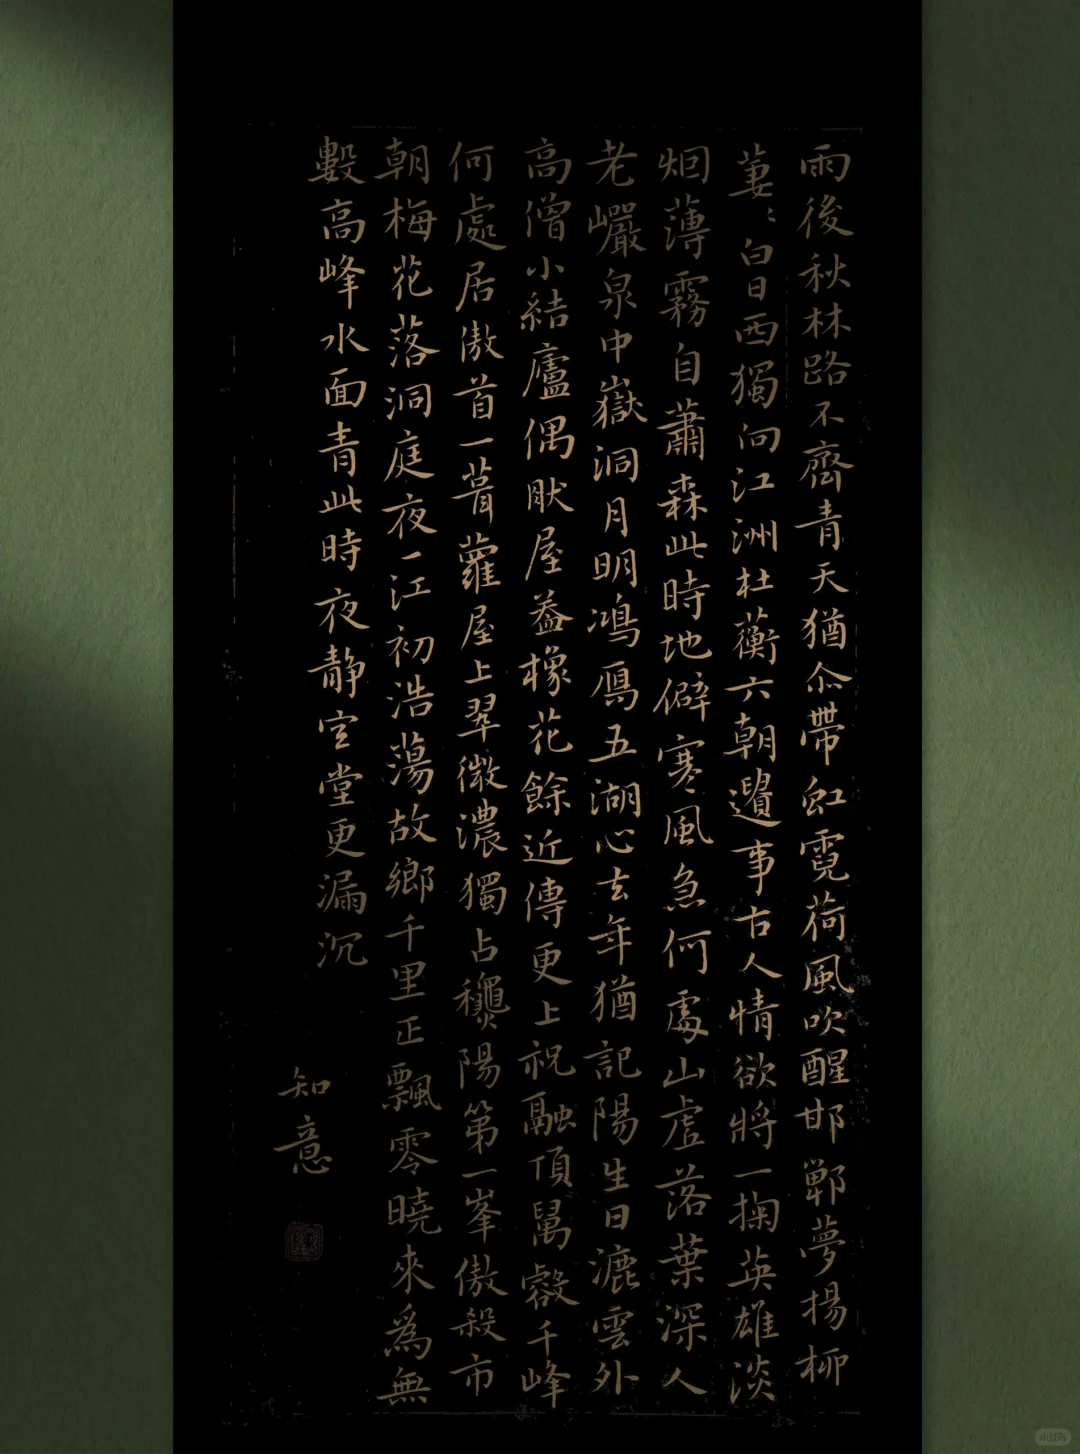 雨後秋林路不齊青天猶尒帶虹霓荷風吹醒邯鄲夢揚柳
萋〻白日西獨向江洲杜蘅六朝遺事古人情欲將一掬英雄淡
烟薄霧自蕭森此時地僻寒風急何處山虛落葉深人
老巖泉中嶽洞月明鴻鴈五湖心去年猶記陽生日漉雲外
高僧小結廬偶肰屋蓋橡花餘近傳更上祝融頂萬壑千峰
何處居傲首一莦蘿屋上翠微濃獨占陽第一峯傲殺市
朝梅花落洞庭夜一江初浩蕩故鄉千里正飄零曉來為無
數高峰水面青此時夜静空堂更漏沉
知意
小红书